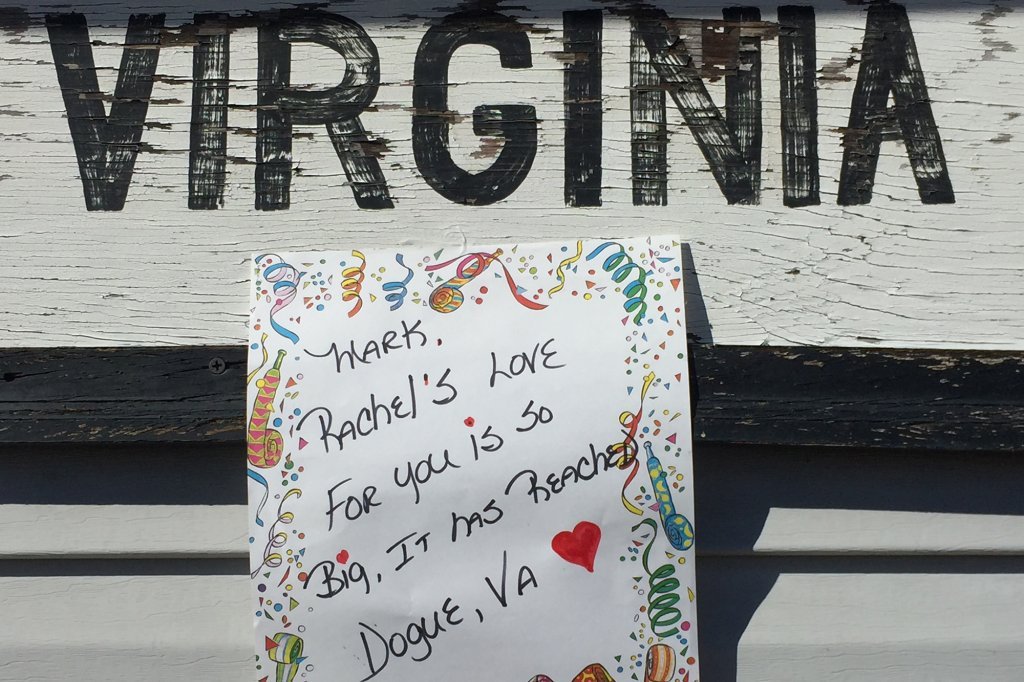 VIRGINIA
MARK,
RACHEl'S LOVE
FOR YOU iS SO
BiG, IT HAS REACHED
DOGUE, VA